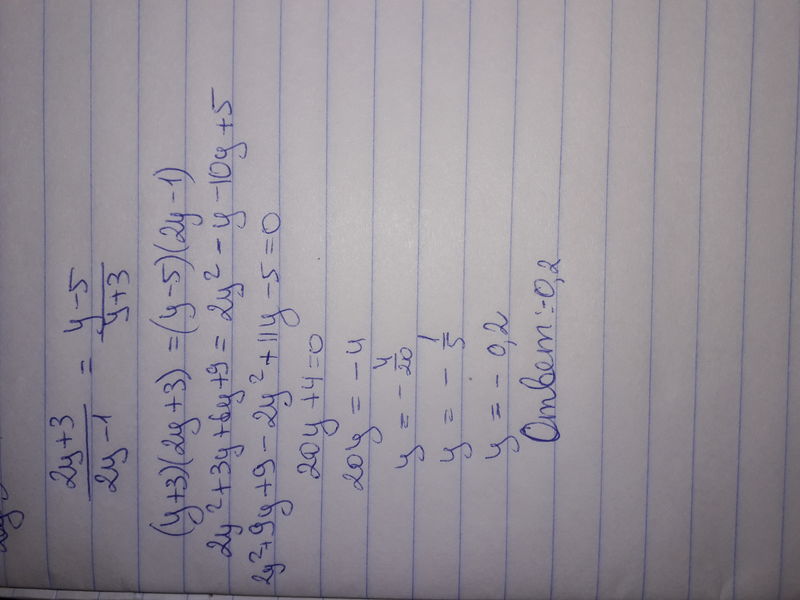 2y+3/2y-1 = y-5/y+3
(y+3)(2y+3)=(y-5)(2y-1)
2y²+3y+6y+9=2y²-y-10y+5
2y²+9y+9-2y²+11y-5=0
20y+4=0
20y=-4
y=-4/20
y=-1/5
y=-0,2
Ответ:-0,2